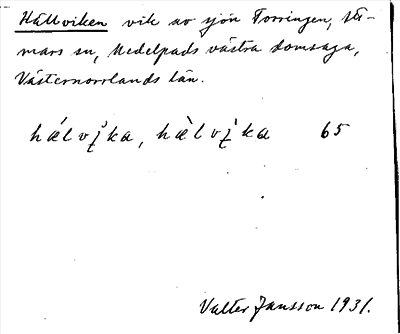 Hällviken vik av sjön Torringen, Här-
mars sn, Medelpads västra domsaga,
Västernorrlands län.
hǽlvi̯̊ka, hæ̀lvì̯ka 65
Valter Jansson 1931.